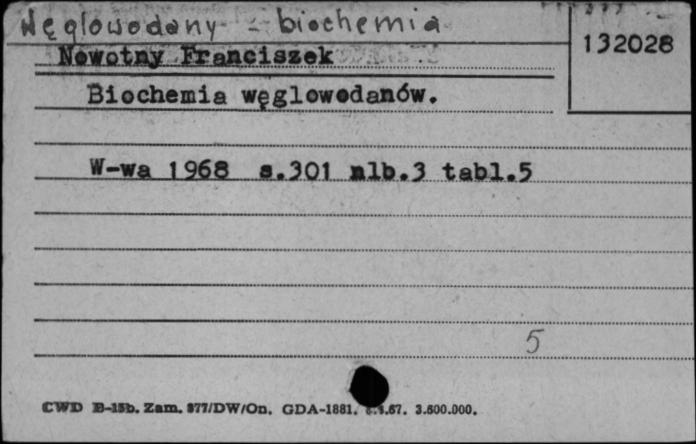 Węglowodany - biochemia
132028
Nowotny Franciszek
Biochemia węglowodanów.
W-wa 1968 s.301 nlb.3 tabl.5
5
CWD B-15b. Zam. 877/DW/On. GDA-1881. 3.600.000.